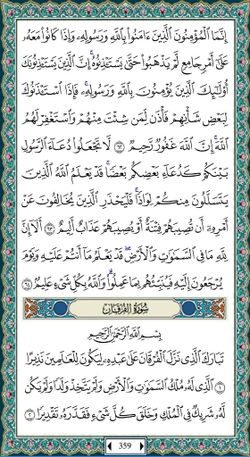 إِنَّمَا ٱلْمُؤْمِنُونَ ٱلَّذِينَ ءَامَنُوا۟ بِٱللَّهِ وَرَسُولِهِۦ وَإِذَا كَانُوا۟ مَعَهُۥ
عَلَىٰٓ أَمْرٍ جَامِعٍ لَّمْ يَذْهَبُوا۟ حَتَّىٰ يَسْتَـْٔذِنُوهُ ۚ إِنَّ ٱلَّذِينَ يَسْتَـْٔذِنُونَكَ
أُو۟لَـٰٓئِكَ ٱلَّذِينَ يُؤْمِنُونَ بِٱللَّهِ وَرَسُولِهِۦ ۚ فَإِذَا ٱسْتَـْٔذَنُوكَ
لِبَعْضِ شَأْنِهِمْ فَأْذَن لِّمَن شِئْتَ مِنْهُمْ وَٱسْتَغْفِرْ لَهُمُ
ٱللَّهَ ۚ إِنَّ ٱللَّهَ غَفُورٌ رَّحِيمٌ ٦٢ لَّا تَجْعَلُوا۟ دُعَآءَ ٱلرَّسُولِ
بَيْنَكُمْ كَدُعَآءِ بَعْضِكُم بَعْضًا ۚ قَدْ يَعْلَمُ ٱللَّهُ ٱلَّذِينَ
يَتَسَلَّلُونَ مِنكُمْ لِوَاذًا ۚ فَلْيَحْذَرِ ٱلَّذِينَ يُخَالِفُونَ عَنْ
أَمْرِهِۦٓ أَن تُصِيبَهُمْ فِتْنَةٌ أَوْ يُصِيبَهُمْ عَذَابٌ أَلِيمٌ ٦٣ أَلَآ إِنَّ
لِلَّهِ مَا فِى ٱلسَّمَـٰوَٰتِ وَٱلْأَرْضِ ۖ قَدْ يَعْلَمُ مَآ أَنتُمْ عَلَيْهِ وَيَوْمَ
يُرْجَعُونَ إِلَيْهِ فَيُنَبِّئُهُم بِمَا عَمِلُوا۟ ۗ وَٱللَّهُ بِكُلِّ شَىْءٍ عَلِيمٌۢ ٦٤
سُورَةُ الفُرْقَانِ
بِسْمِ ٱللَّهِ ٱلرَّحْمَـٰنِ ٱلرَّحِيمِ
تَبَارَكَ ٱلَّذِى نَزَّلَ ٱلْفُرْقَانَ عَلَىٰ عَبْدِهِۦ لِيَكُونَ لِلْعَـٰلَمِينَ نَذِيرًا
١ ٱلَّذِى لَهُۥ مُلْكُ ٱلسَّمَـٰوَٰتِ وَٱلْأَرْضِ وَلَمْ يَتَّخِذْ وَلَدًا وَلَمْ يَكُن
لَّهُۥ شَرِيكٌ فِى ٱلْمُلْكِ وَخَلَقَ كُلَّ شَىْءٍ فَقَدَّرَهُۥ تَقْدِيرًا ٢
359